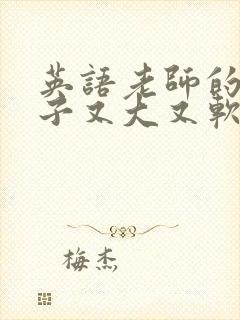 英語老師的
子又大又軟
梅杰